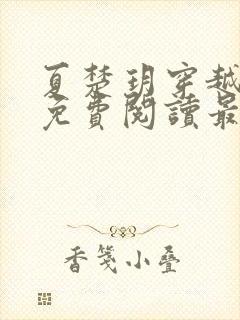 夏楚玥穿越
免費閱讀最
香箋小疊